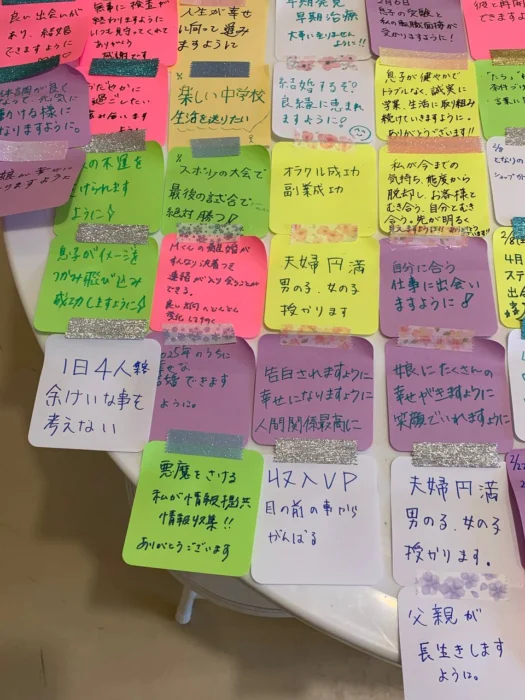 良い出会いが
あり、結婚
できますように
無事に検査が
終わりますように
いつも見守ってくれて
ありがとう
感謝です
人生が幸せ
に向って進み
ますように
早期発見
早期治療
大事に至りません
ように!!
2月6日
息子の受験と
私の転職面接が
受かりますように!
できますように
なって、元気に
動ける様に
なりますように。
おだやかに
過ごしたい
お願いします
楽しい中学校
生活を送りたい
結婚するぞ!
良縁に恵まれ
ますように!
息子が健やかで
トラブルなく、誠実に
学業、生活に取り組み
続けていきますように。
ありがとうございます!!
娘が幸せに
なりますように
の不運を
けられます
ように
スポーツの大会で
最後の試合で
絶対勝つ
オラクル成功
副業成功
私が今までの
気持ち、態度から
脱却し、お客様と
むき合う、自分とむき
合う。先が明るく
見えますように
息子がイメージを
つかみ飛び込み
成功しますように
Mくんの離婚が
すんなり決着って
連絡が入り会うことが
できる。
良い方向へどんどん
変化します
夫婦円満
男の子、女の子
授かります
自分に合う
仕事に出会い
ますように
4月
1日4人稼
余けいな事を
考えない
2025年のうちに
せな
婚できます
ように。
告白されますように
幸せになりますように
人間関係最高に
娘にたくさんの
幸せがきますように
笑顔でいれますように
悪魔をさける
私が情報提供
情報収集!!
ありがとうございます
収入UP
目の前の事から
がんばる
夫婦円満
男の子、女の子
授かります。
父親が
長生きします
ように。